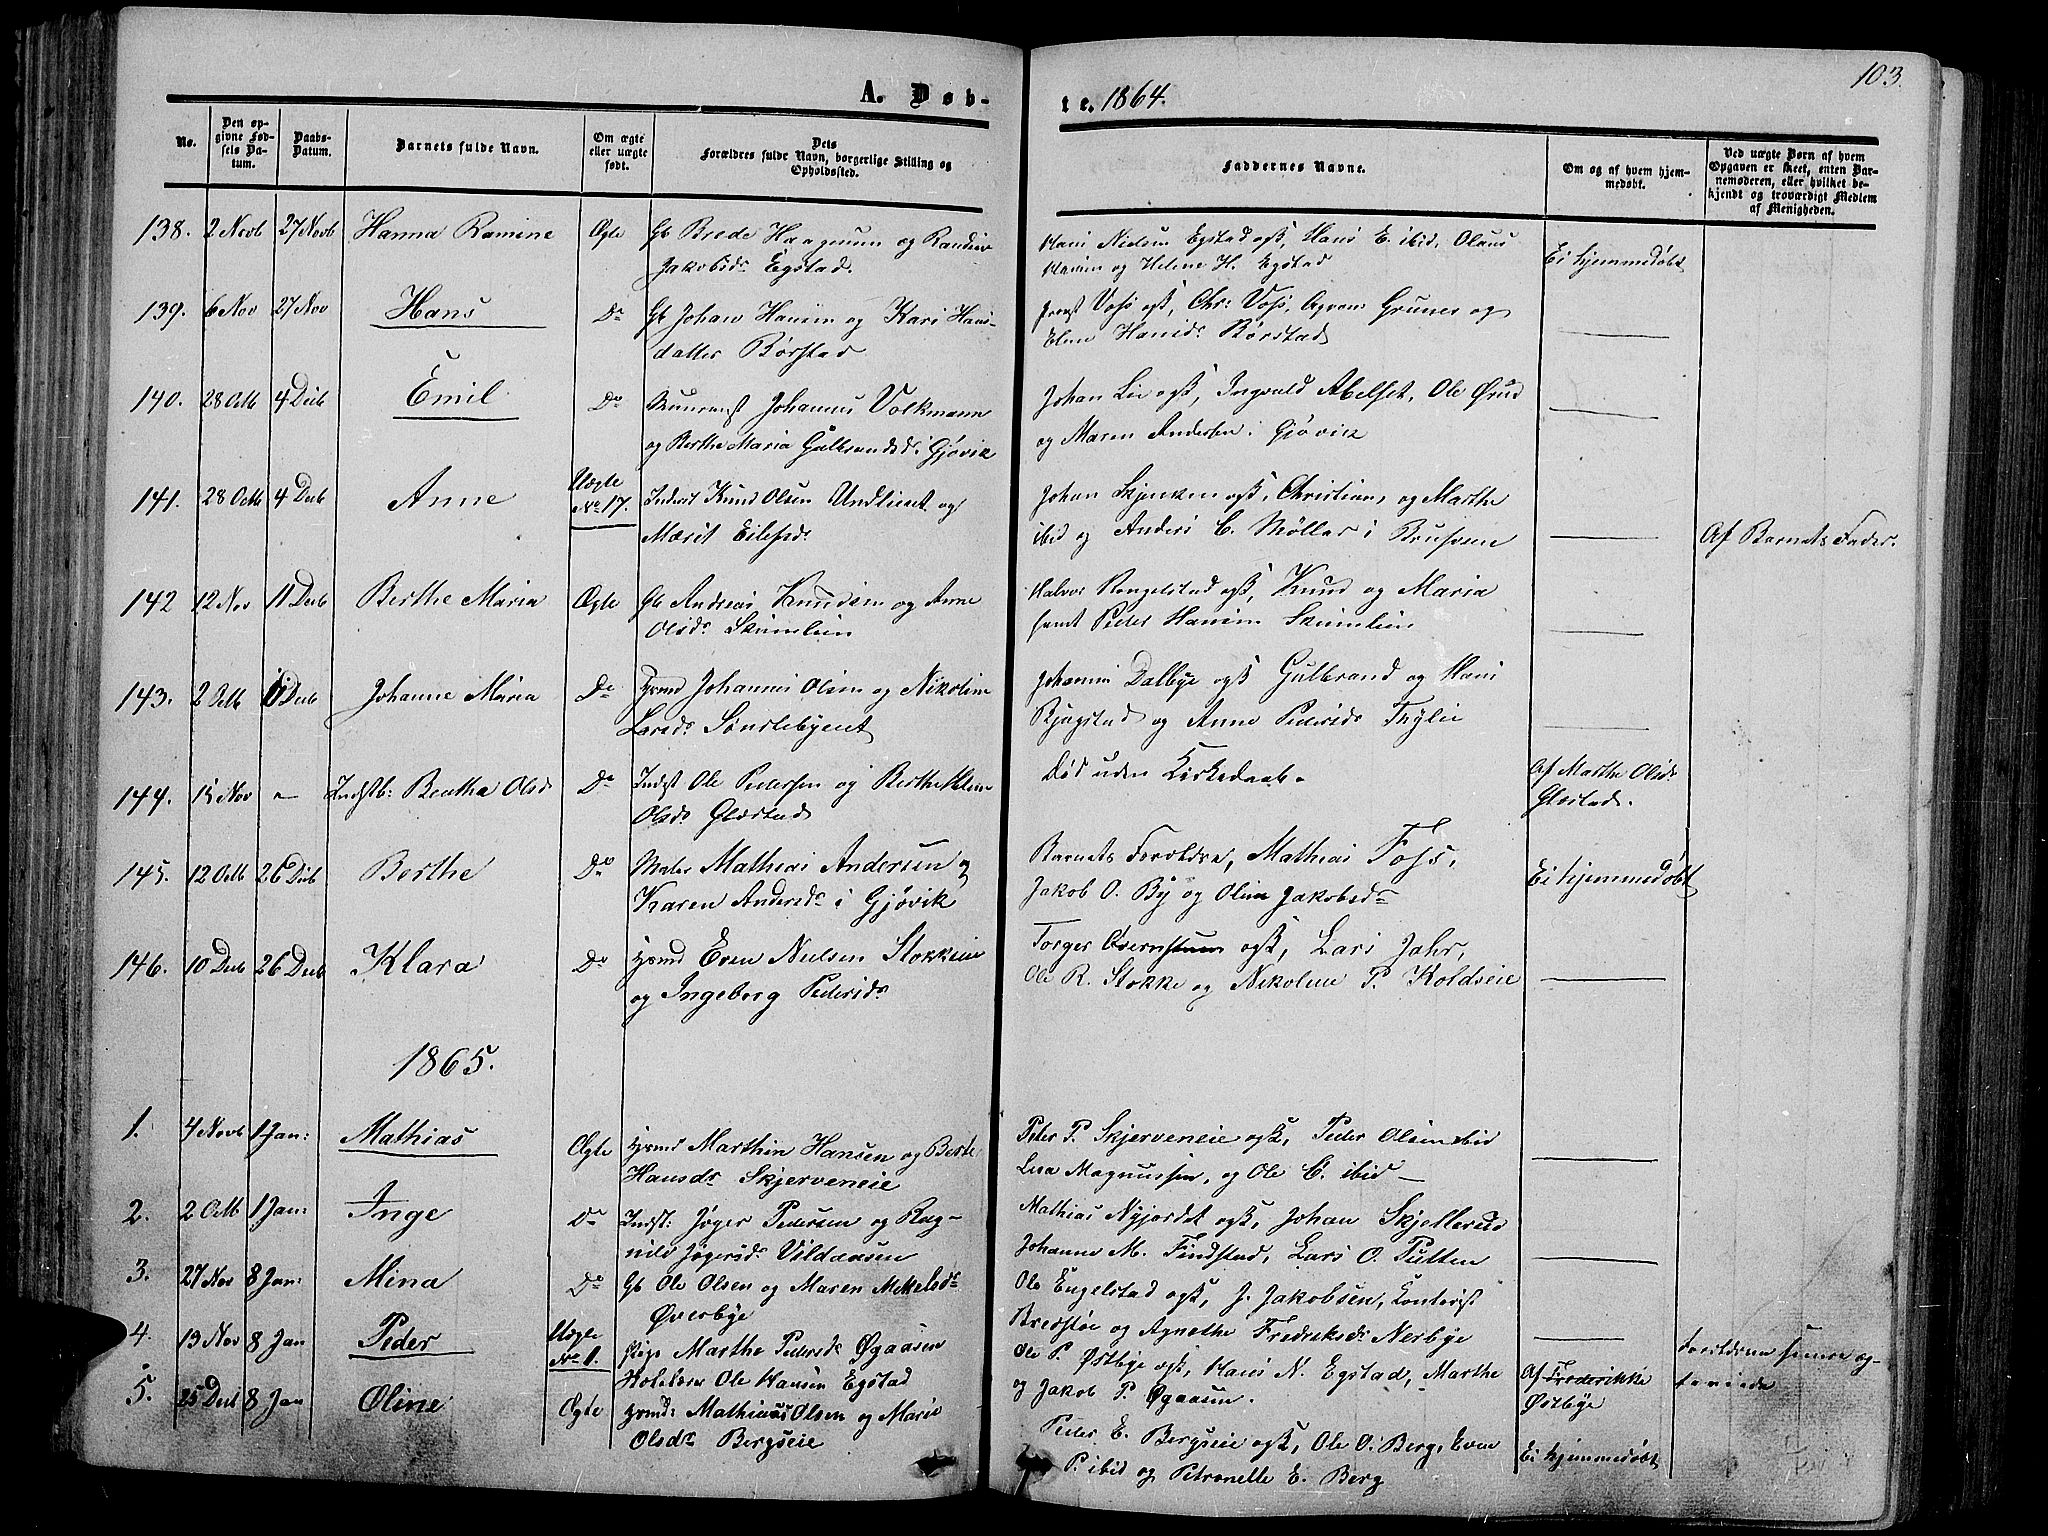 103.
A. Døb-
te. 1864.
No.
Den op-
givne Fød-
sels Da-
tum.
Daabs-
Datum.
Barnets fulde Navn.
Om ægte
eller uægte
født.
Dets
Forældres fulde Navn, borgerlige Stilling og
Opholdssted.
Faddernes Navne.
Om og af hvem hjem-
medøbt.
Ved uægte Børn af hvem
Opgaven er skeet, enten Bar-
nemoderen, eller hvilket be-
kjendt og troværdigt Medlem
af Menigheden.
138. 2 Novb 27 Novb Hanna Ramine Ægte Gb Brede Haagensen og Randine
Jakobsdr Egstad.
Hans Nielsen Egstad ogk, Hans E. ibid, Olaus
Hansen og Helene H. Egstad
Ei hjemmedøbt
139. 6 Nov 27 Nov Hans Do Gb Johan Hansen og Kari Hans-
datter Børstad
Voss ogk, Chr: Voss, Gruner og
Eline Hansdr Børstad
140. 28 Octb 4 Decb Emil Do Johannes Volkmann
og Berthe Maria Gulbrandsd. i Gjøvik
Johan Lie ogk, Ingvald Abelset, Ole Ørud
og Maren Andersen i Gjøvik
141. 28 Octb 4 Decb Anne Uægte
No 17. Inderst Knud Olsen Undlieset og
Mærit Eilefsdr
Johan ogk, Christian, og Marthe
ibid og Anders C. Møller i Brusveen
Af Barnets Fader.
142 12 Nov 11 Decb Berthe Maria Ægte Gb Andreas Knudsen og Anne
Olsdr Skumlien
Halvor Rengelstad ogk, Knud og Maria
samt Peder Hansen Skumlien
143. 2 Octb 11 Decb Johanne Maria Do Hsmd Johannes Olsen og Nikoline
Larsdr Sønstebyeiet
Johannes Dalbye ogk Gulbrand og Hans
Bjugstad og Anne Pedersdr Thylie
144. 15 Nov – Indstb: Beatha Olsd Do Indst Ole Pedersen og Berthe Helene
Olsdr Glæstad
Død uden Kirkedaab.
Af Marthe Olsdr
Glæstad.
145. 12 Octb 26 Decb Berthe Do Maler Mathias Andersen og
Karen Andersdr i Gjøvik
Barnets Forældre, Mathias Foss,
Jakob O. By og Oline Jakobsdr
Ei hjemmedøbt
146. 10 Decb 26 Decb Klara Do Hsmd Even Nielsen Stokkeie
og Ingeborg Pedersdr
Torger Øvernstuen ogk, Lars Jahr,
Ole R. Stokke og Nikoline P. Koldseie
1865.
1. 4 Novb 1 Jan: Mathias Ægte Hsmd Marthin Hansen og Berte
Hansdr Skjerveneie
Peter P. Skjerveneie ogk, Peder Olsen ibid
Lisa Magnussen, og Ole C. ibid –
2. 2 Octb 1 Jan: Inge Do Indst: Jøger Pedersen og Rag-
nild Jøgersdr Vildaasen
Mathias Nyjordet ogk, Johan Skjellerud
Johanne M. Findstad, Lars O. Tutten
3. 27 Nov 8 Jan: Mina Do Gb Ole Olsen og Maren Mikkelsdr
Øverbye
Ole Engelstad ogk, J. Jakobsen, Kontorist
Bredstøe og Agnethe Fredriksdr Nerbye
4. 13 Nov 8 Jan Peder Uægte
No 1. Pige Marthe Pedersdr Øgaasen
Ole Hansen Egstad
Ole P. Østbye ogk, Hans N. Egstad, Marthe
og Jakob P. Øgaasen.
Af Frederikke
Østbye
Forældrene
5. 25 Decb 8 Jan Oline Ægte Hsmd: Mathias Olsen og Marie
Olsdr Bergseie
Peder E. Bergseie ogk, Ole O. Berg, Even
P. ibid og Petronelle E. Berg
Ei hjemmedøbt